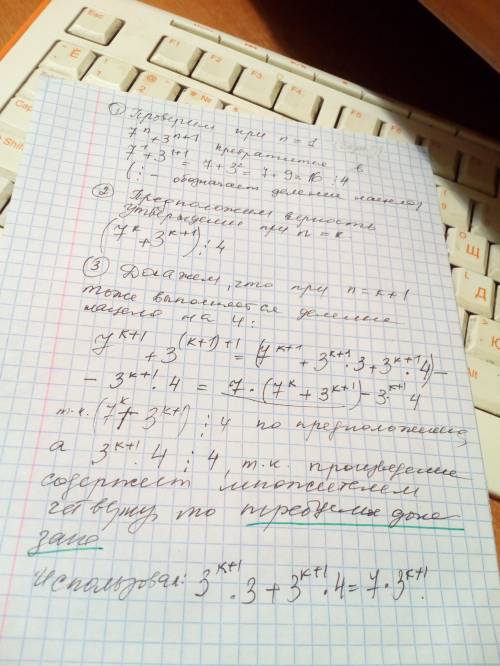 Esc
F1
F2
F3
F4
① Проверим при n = 1
7ⁿ + 3ⁿ⁺¹ превратится в
7¹ + 3¹⁺¹ = 7 + 3² = 7 + 9 = 16 ⋮ 4
(⋮ – обозначает деление нацело)
② Предположим верность
утверждения при n = k
(7ᵏ + 3ᵏ⁺¹) ⋮ 4
③ Докажем, что при n = k+1
тоже выполняется деление
нацело на 4:
7ᵏ⁺¹ + 3⁽ᵏ⁺¹⁾⁺¹ = (7ᵏ⁺¹ + 3ᵏ⁺¹·3 + 3ᵏ⁺¹·4) –
– 3ᵏ⁺¹·4 = 7·(7ᵏ + 3ᵏ⁺¹) – 3ᵏ⁺¹·4
т.к. (7ᵏ + 3ᵏ⁺¹) ⋮ 4 по предположению,
а 3ᵏ⁺¹·4 ⋮ 4, т.к. произведение
содержит множителем
четверку, то требуемое дока
зано
Использовал: 3ᵏ⁺¹·3 + 3ᵏ⁺¹·4 = 7·3ᵏ⁺¹.